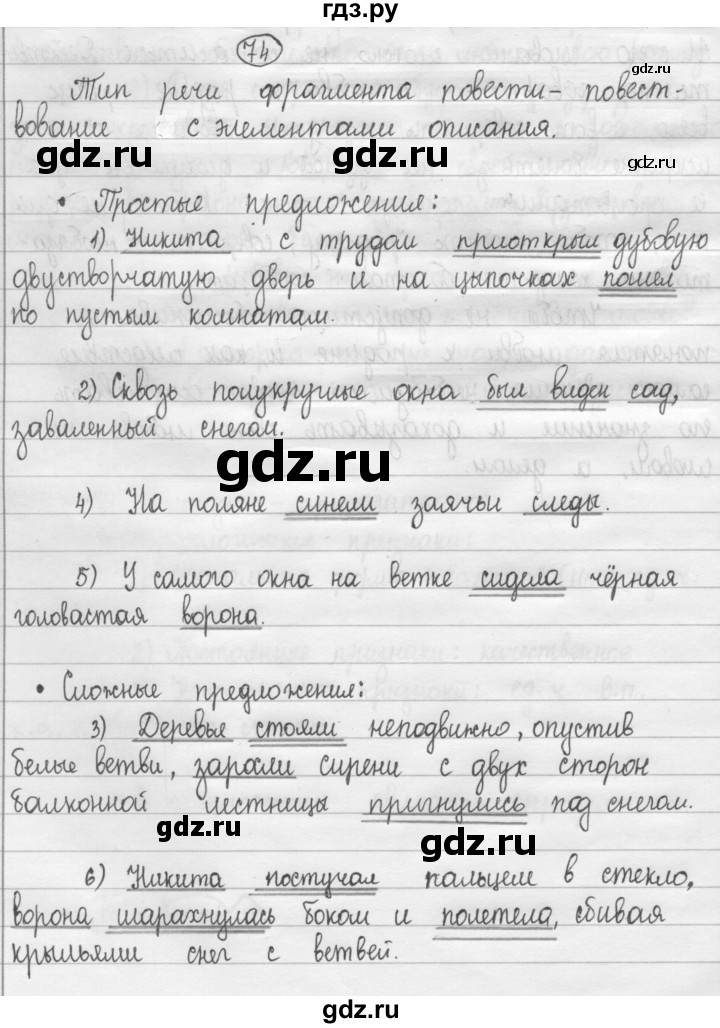 гдз.ру
74
gdz.ru
Тип речи фрагмента повести – повест-
вование с элементами описания.
gdz.ru gdz.ru gdz.ru
• Простые предложения:
1) Никита с трудом приоткрыл дубовую
двустворчатую дверь и на цыпочках пошел
по пустым комнатам.
2) Сквозь полукруглые окна был виден сад,
заваленный снегом.
gdz.ru
4) На поляне синели заячьи следы.
5) У самого окна на ветке сидела чёрная
головастая ворона.
• Сложные предложения:
3) Деревья стояли неподвижно, опустив
белые ветви, заросли сирени с двух сторон
балконной лестницы пригнулись под снегом.
gdz.ru
gdz.ru
6) Никита постучал пальцем в стекло,
ворона шарахнулась боком и полетела, сбивая
крыльями снег с ветвей.
gdz.ru